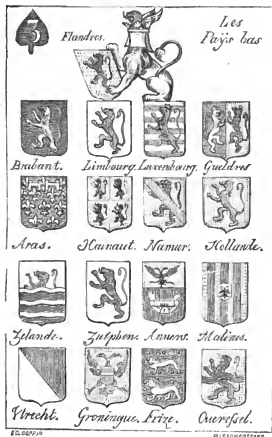 5 Flandres. Les
Paÿs bas
Brabant. Limbourg. Luxembourg. Gueldres
Aras. Hainaut. Namur. Hollande.
Zelande. Zutphen. Anvers. Malines.
Vtrecht. Groningue. Frize. Overeßel.